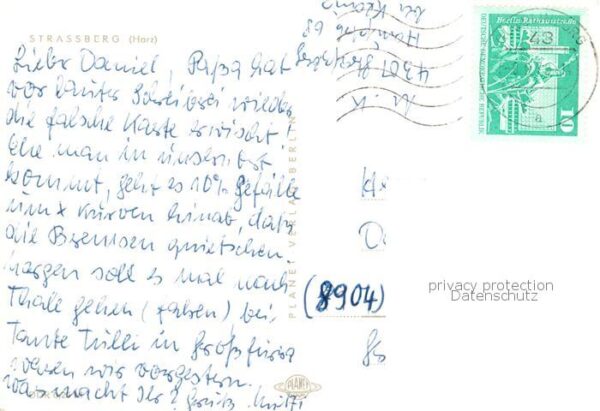 STRASSBERG (Harz)
Lieber Daniel, Papa hat
vor lauter Schreiberei wieder
die falsche Karte erwischt!
Ehe man in unseren Ort
kommt, geht es 10% Gefälle
und Kurven hinab, daß
die Bremsen quietschen.
Morgen soll es mal nach
Thale gehen (fahren) bei
Tante Tilli in Großfurra
waren wir vorgestern.
Was macht Ihr? Gruß Mutti
PLANET-VERLAG BERLIN
PLANET
4301
68
Berlin, Rathausstraße
DEUTSCHE DEMOKRATISCHE REPUBLIK
10
43
a
(8904)
privacy protection
Datenschutz